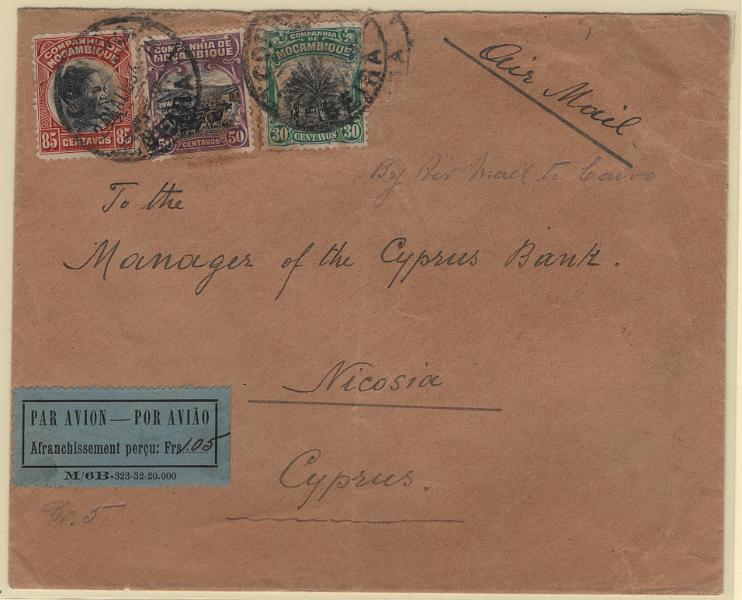 COMPANHIA DE
MOÇAMBIQUE
85 CENTAVOS 85
COMPANHIA DE
MOÇAMBIQUE
50 CENTAVOS 50
COMPANHIA
DE
MOÇAMBIQUE
30 CENTAVOS 30
BEIRA
Air Mail
By Air Mail to Cairo
To the
Manager of the Cyprus Bank.
Nicosia
Cyprus.
PAR AVION — POR AVIÃO
Afranchissement perçu: Frs 1.05
M/6B-323-32-20.000